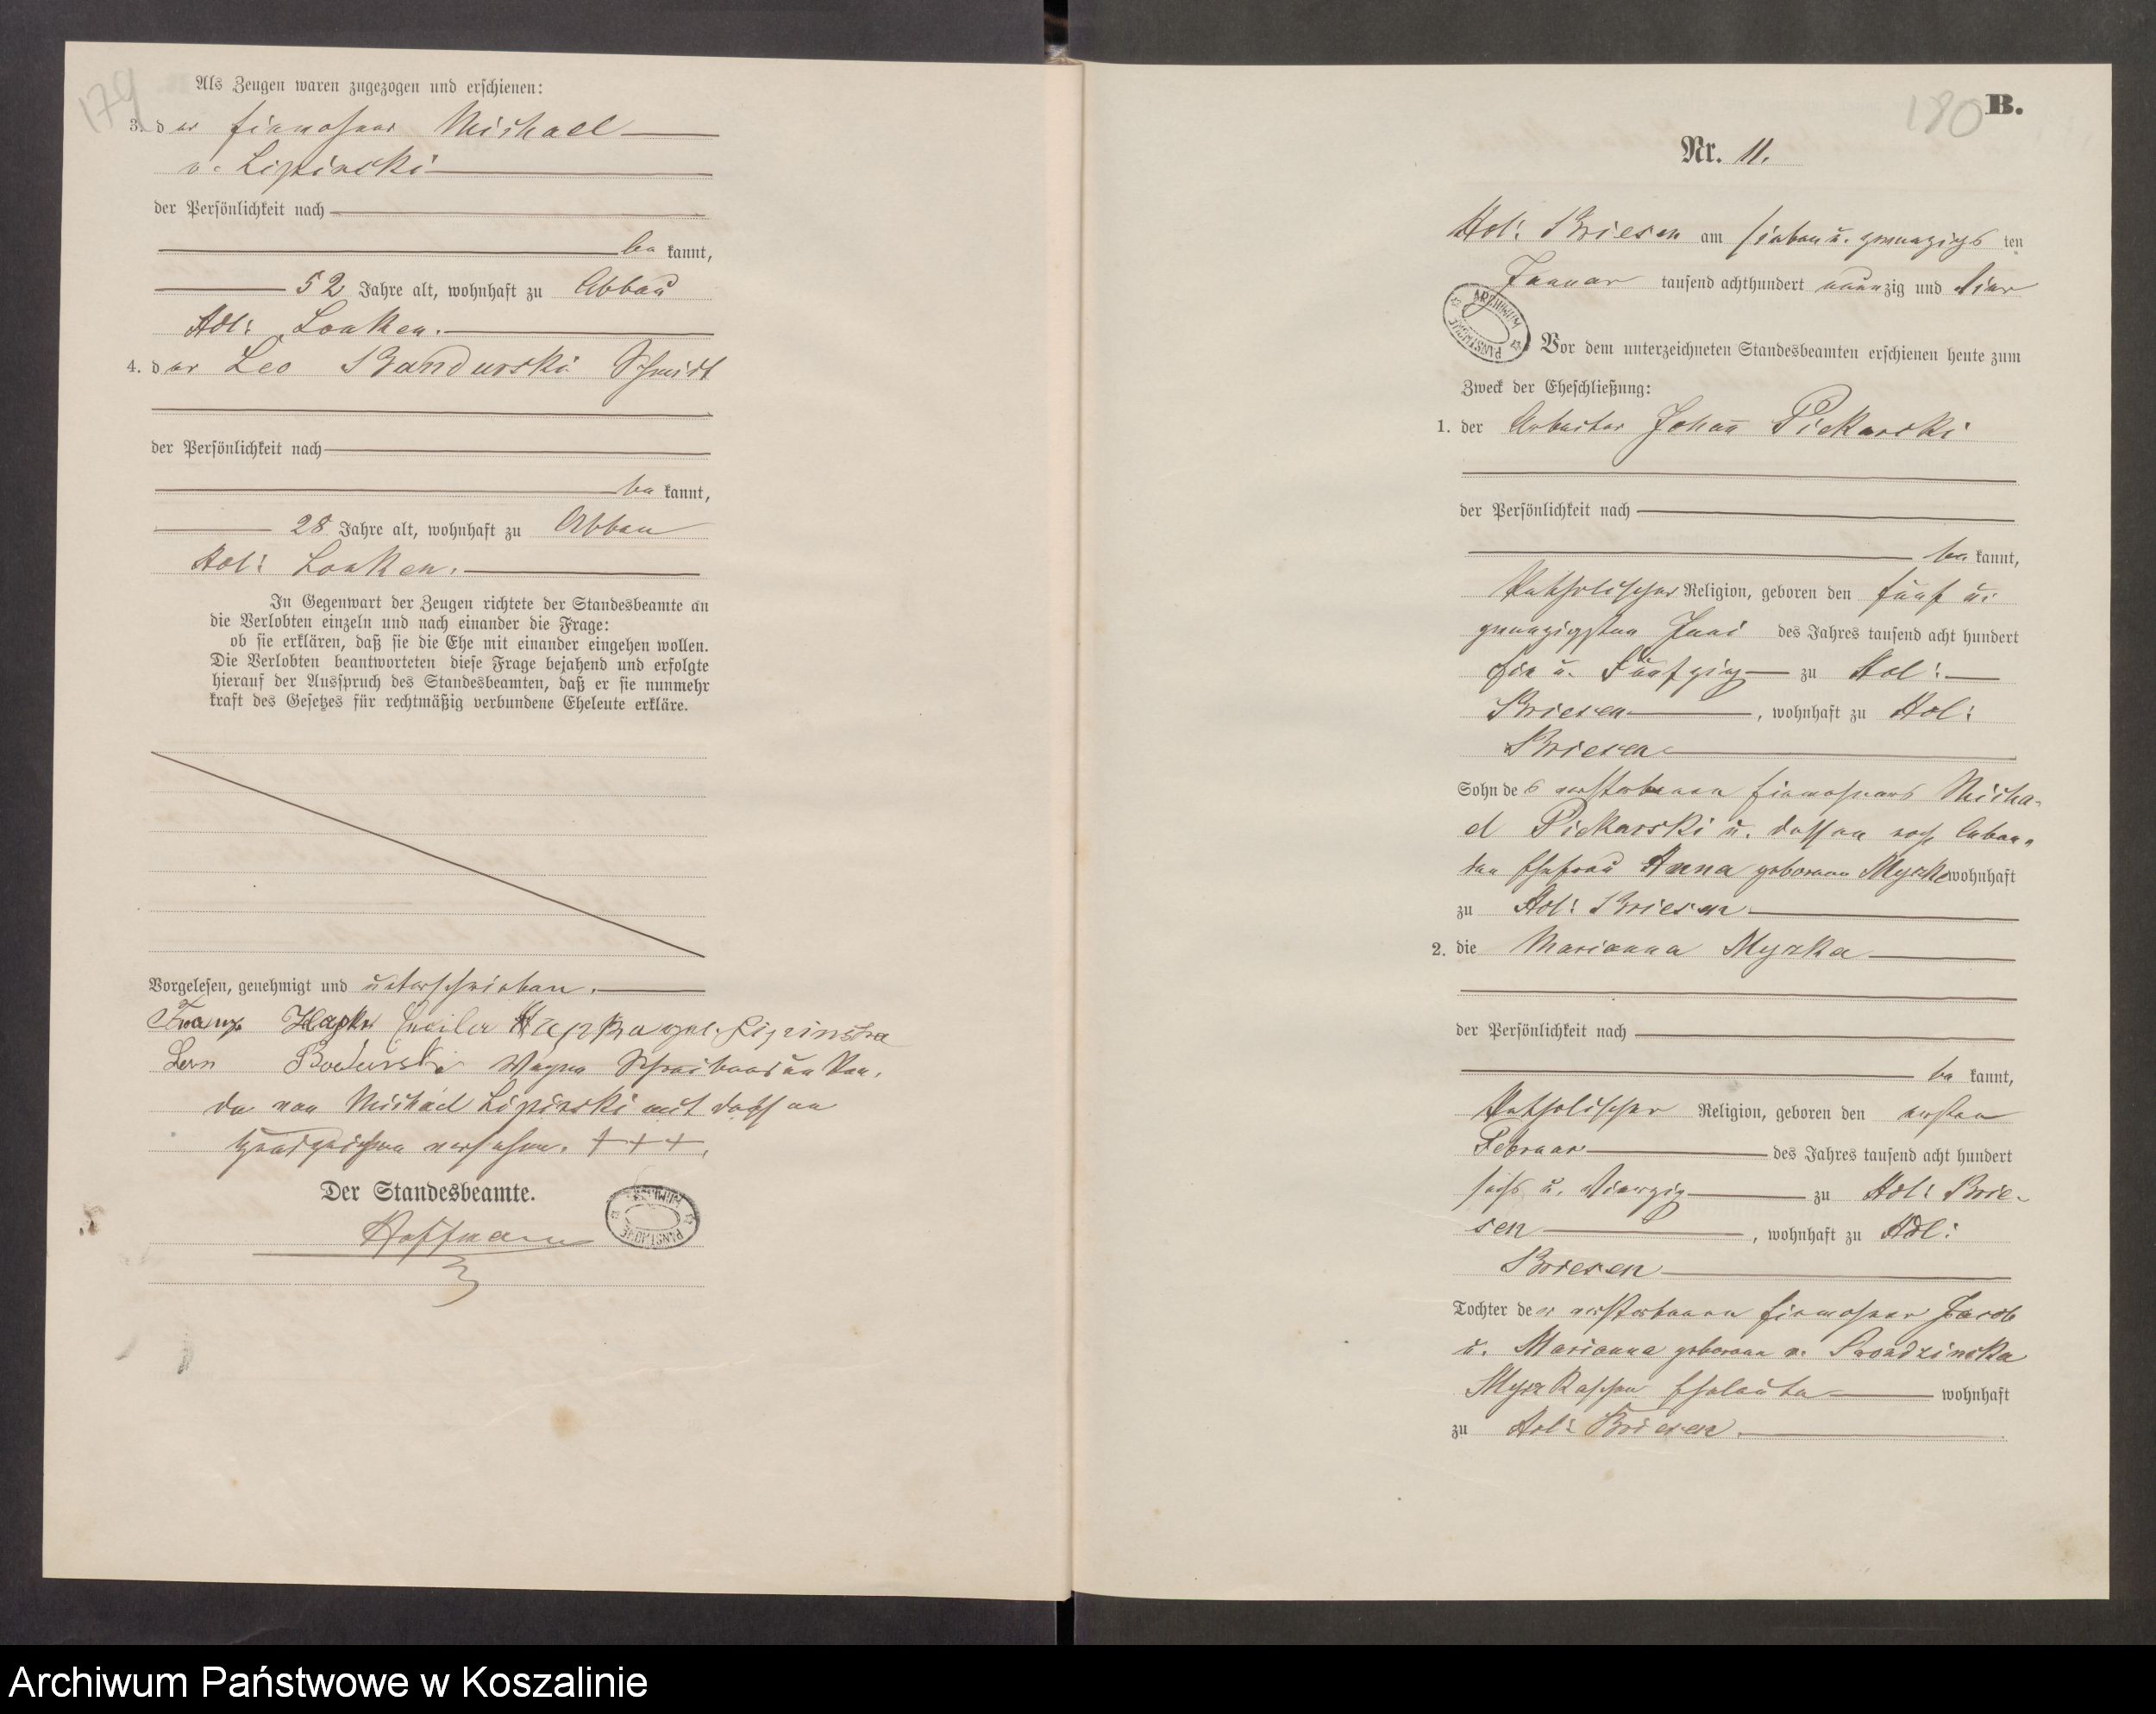 179
Als Zeugen waren zugezogen und erschienen:
3. der Einwohner Michael
v. Lipinski
der Persönlichkeit nach
be kannt,
52 Jahre alt, wohnhaft zu Abbau
Adl: Lonken.
4. der Leo Bandurski Schmidt
der Persönlichkeit nach
be kannt,
28 Jahre alt, wohnhaft zu Abbau
Adl: Lonken.
In Gegenwart der Zeugen richtete der Standesbeamte an
die Verlobten einzeln und nach einander die Frage:
ob sie erklären, daß sie die Ehe mit einander eingehen wollen.
Die Verlobten beantworteten diese Frage bejahend und erfolgte
hierauf der Ausspruch des Standesbeamten, daß er sie nunmehr
kraft des Gesetzes für rechtmäßig verbundene Eheleute erkläre.
Vorgelesen, genehmigt und unterschrieben.
Franz Hapka geb. Lipinska
Wegen Schreibensunkun-
de von Michael Lipinski mit dessen
Handzeichen versehen. + + +.
Der Standesbeamte.
Hoffmann
180
B.
Nr. 11.
Adl: Briesen am sieben u. zwanzigs ten
Januar tausend achthundert neunzig und vier
ARCHIWUM PAŃSTWOWE
Vor dem unterzeichneten Standesbeamten erschienen heute zum
Zweck der Eheschließung:
1. der Arbeiter Johann Piekarski
der Persönlichkeit nach
be kannt,
katholischer Religion, geboren den fünf u.
zwanzigsten Juni des Jahres tausend acht hundert
ein u. fünfzig zu Adl:
Briesen, wohnhaft zu Adl:
Briesen
Sohn des verstorbenen Einwohners Micha-
el Piekarski u. dessen noch leben-
den Ehefrau Anna geborenen Myszke wohnhaft
zu Adl: Briesen
2. die Marianna Myszka
der Persönlichkeit nach
be kannt,
katholischer Religion, geboren den ersten
Februar des Jahres tausend acht hundert
sechs u. vierzig zu Adl: Brie-
sen, wohnhaft zu Adl:
Briesen
Tochter der verstorbenen Einwohner Jacob
u. Marianna geborene v.
Myszkaschen Eheleute wohnhaft
zu Adl: Briesen.
Archiwum Państwowe w Koszalinie